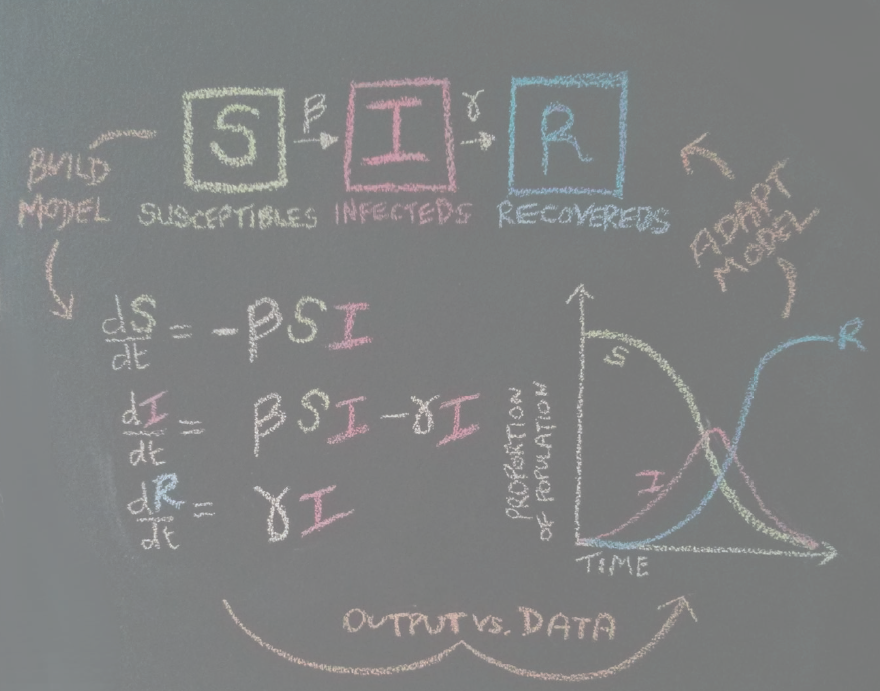 S β I γ R
BUILD
MODEL
SUSCEPTIBLES INFECTEDS RECOVEREDS
ADAPT
MODEL
dS/dt = -βSI
dI/dt = βSI - γI
dR/dt = γI
S
I
R
PROPORTION
OF POPULATION
TIME
OUTPUT VS. DATA